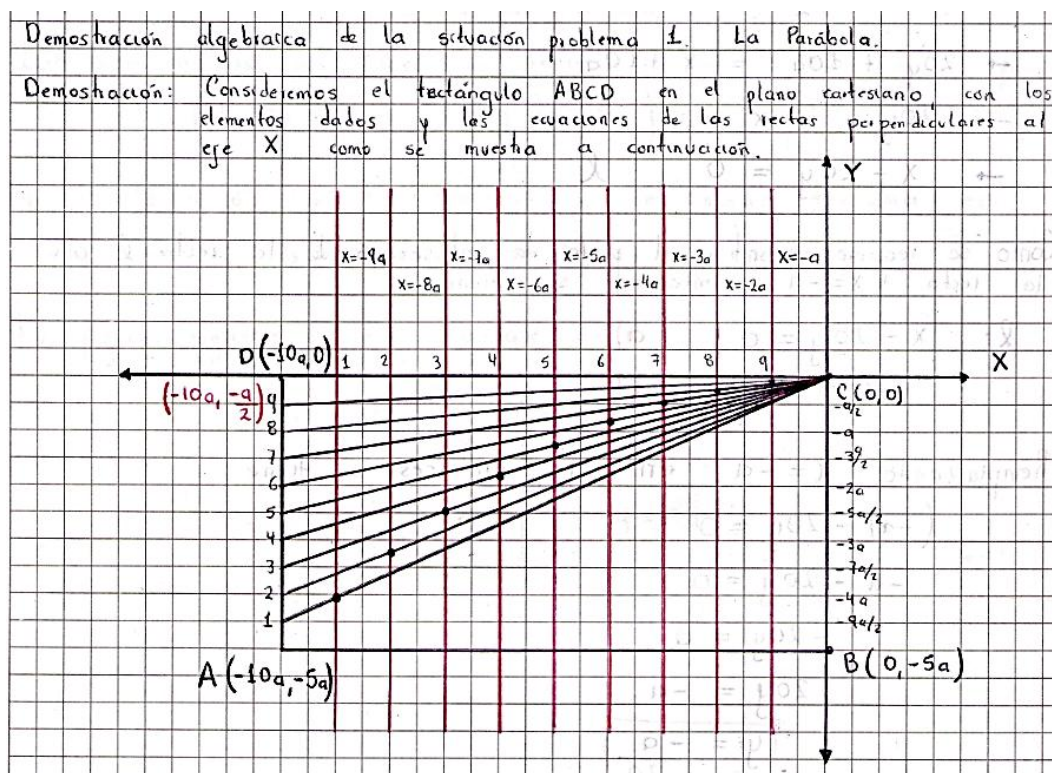 Demostración algebraica de la situación problema 1. La Parábola.
Demostración: Consideremos el rectángulo ABCD en el plano cartesiano, con los
elementos dados y las ecuaciones de las rectas perpendiculares al
eje X como se muestra a continuación.
Y
x=-9a x=-7a x=-5a x=-3a x=-a
x=-8a x=-6a x=-4a x=-2a
D(-10a,0) 1 2 3 4 5 6 7 8 9
X
(-10a, -a/2) 9 C(0,0)
-a/2
8 -a
7 -3a/2
6 -2a
5 -5a/2
4 -3a
3 -7a/2
2 -4a
1 -9a/2
A(-10a,-5a) B(0,-5a)